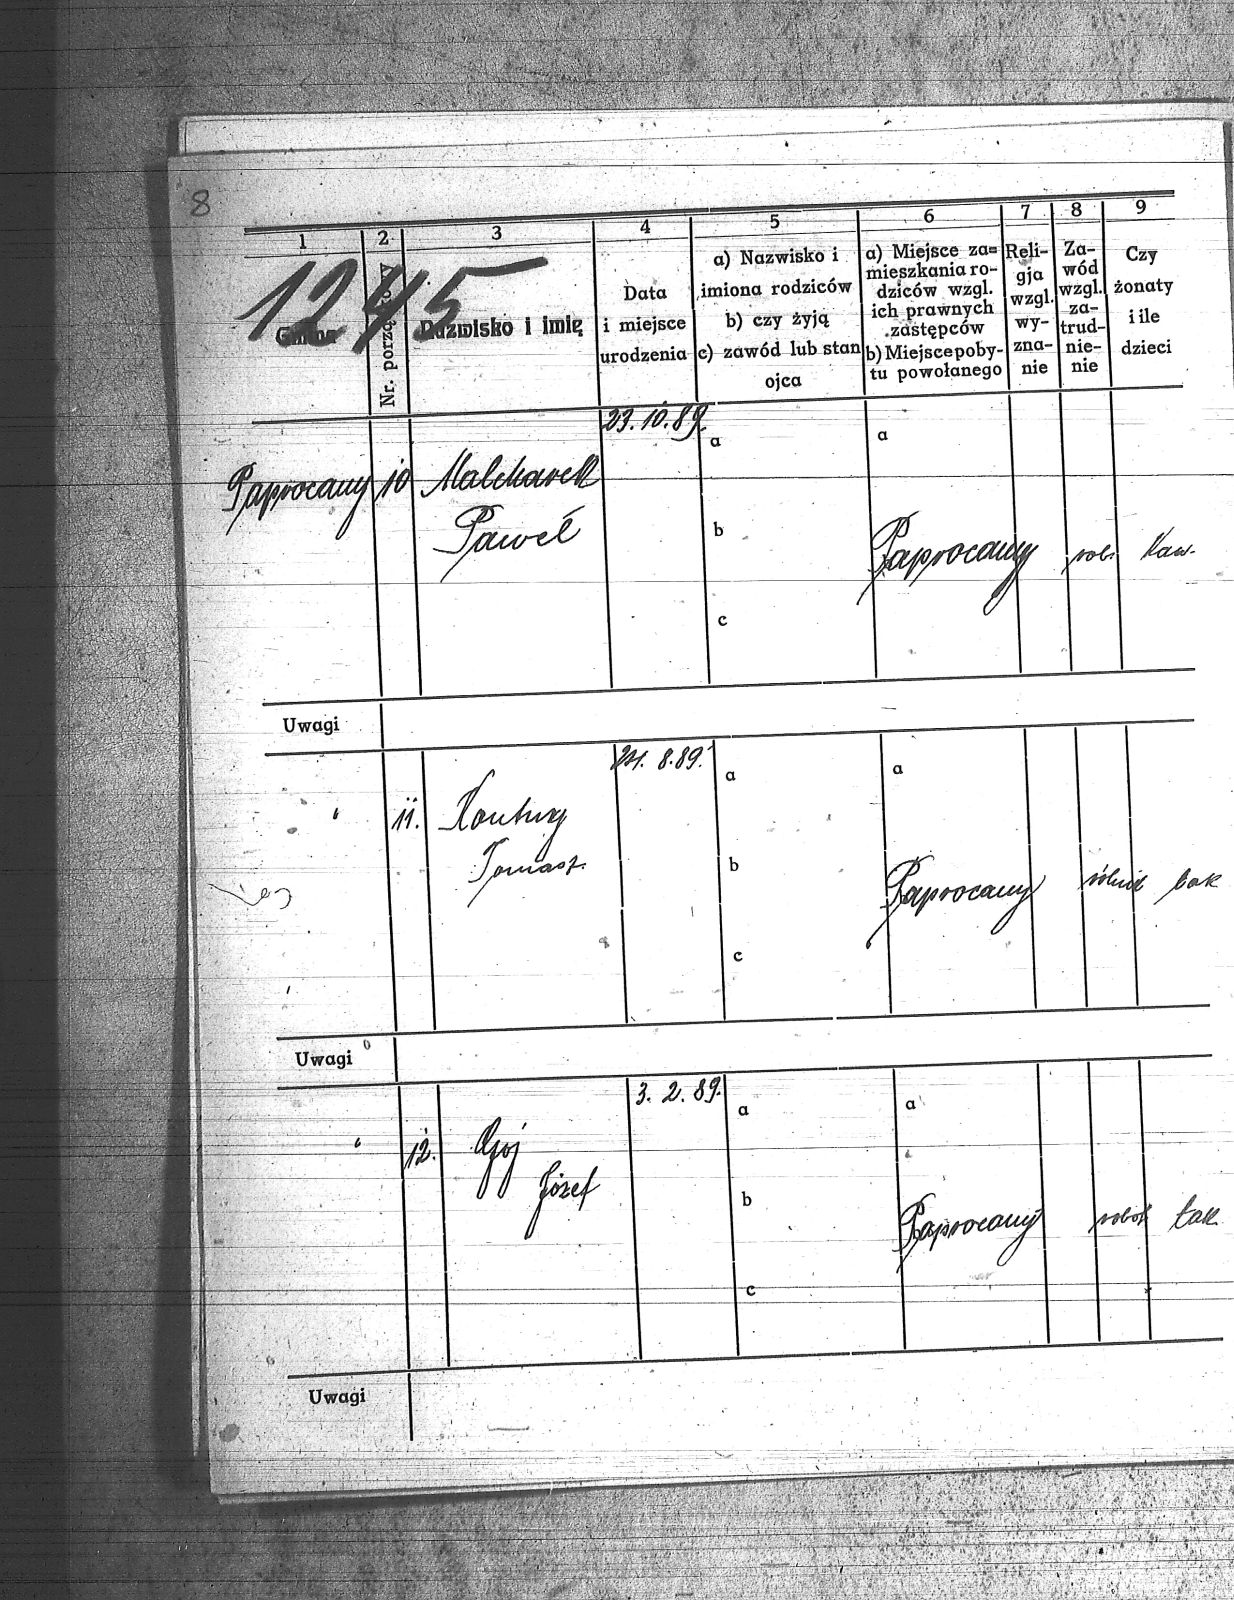 8
1 2 3 4 5 6 7 8 9
1245
Gmina
Nr. porządkowy
Nazwisko i imię
Data
i miejsce
urodzenia
a) Nazwisko i
imiona rodziców
b) czy żyją
c) zawód lub stan
ojca
a) Miejsce za=
mieszkania ro-
dziców wzgl.
ich prawnych
zastępców
b) Miejsce poby-
tu powołanego
Reli-
gja
wzgl.
wy-
zna-
nie
Za-
wód
wzgl.
za-
trud-
nie-
nie
Czy
żonaty
i ile
dzieci
23.10.89.
a
a
Paprocany 10 Malcharek
Paweł
b
Paprocany rob. kaw.
c
Uwagi
8.89.
a
a
" 11.
Tomasz
b
Paprocany rolnik tak
c
Uwagi
3. 2. 89.
a
a
" 12. Gój
Józef
b
Paprocany robot tak
c
Uwagi